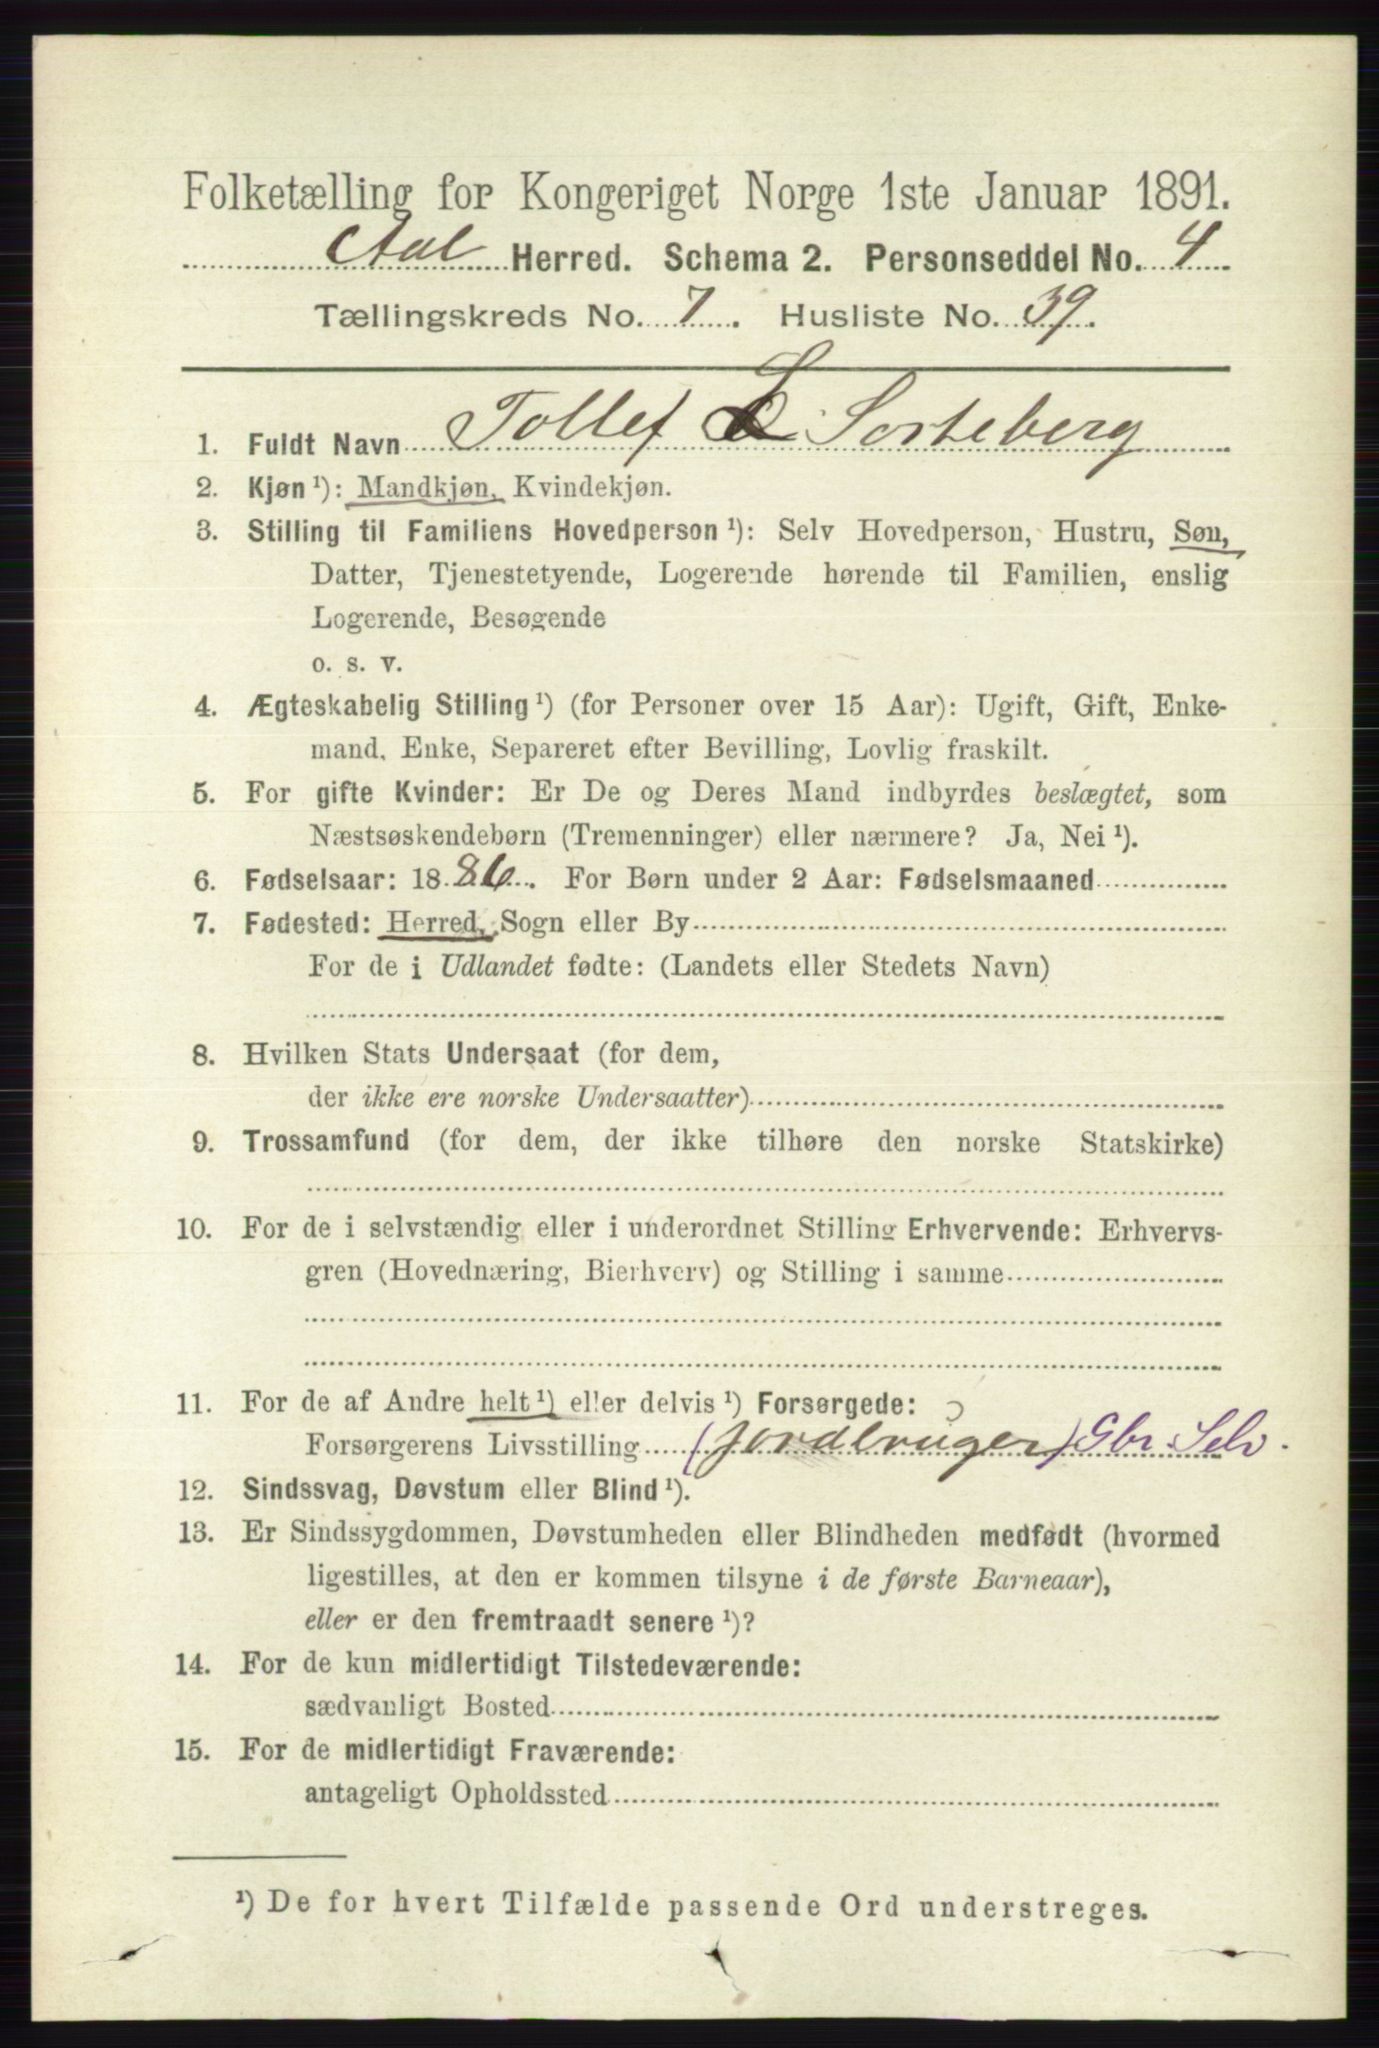 Folketælling for Kongeriget Norge 1ste Januar 1891.
Aal Herred. Schema 2. Personseddel No. 4
Tællingskreds No. 7. Husliste No. 39.
1. Fuldt Navn Tollef L. Sorteberg
2. Kjøn ¹): Mandkjøn, Kvindekjøn.
3. Stilling til Familiens Hovedperson ¹): Selv Hovedperson, Hustru, Søn,
Datter, Tjenestetyende, Logerende hørende til Familien, enslig
Logerende, Besøgende
o. s. v.
4. Ægteskabelig Stilling ¹) (for Personer over 15 Aar): Ugift, Gift, Enke-
mand, Enke, Separeret efter Bevilling, Lovlig fraskilt.
5. For gifte Kvinder: Er De og Deres Mand indbyrdes beslægtet, som
Næstsøskendebørn (Tremenninger) eller nærmere? Ja, Nei ¹).
6. Fødselsaar: 1886. For Børn under 2 Aar: Fødselsmaaned
7. Fødested: Herred, Sogn eller By
For de i Udlandet fødte: (Landets eller Stedets Navn)
8. Hvilken Stats Undersaat (for dem,
der ikke ere norske Undersaatter)
9. Trossamfund (for dem, der ikke tilhøre den norske Statskirke)
10. For de i selvstændig eller i underordnet Stilling Erhvervende: Erhvervs-
gren (Hovednæring, Bierhverv) og Stilling i samme
11. For de af Andre helt ¹) eller delvis ¹) Forsørgede:
Forsørgerens Livsstilling (Jordbruger) Gbr. Selv.
12. Sindssvag, Døvstum eller Blind ¹).
13. Er Sindssygdommen, Døvstumheden eller Blindheden medfødt (hvormed
ligestilles, at den er kommen tilsyne i de første Barneaar),
eller er den fremtraadt senere ¹)?
14. For de kun midlertidigt Tilstedeværende:
sædvanligt Bosted
15. For de midlertidigt Fraværende:
antageligt Opholdssted
¹) De for hvert Tilfælde passende Ord understreges.